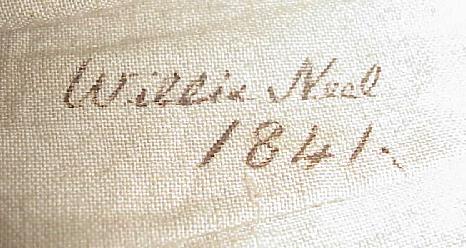 Willie Neel
1841.